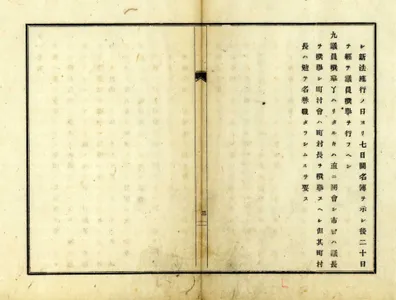 レ新法施行ノ日ヨリ七日間名簿ヲ示シ後二十日
ヲ経テ議員撰挙ヲ行フヘシ
九議員撰挙了ハリタルトキハ直ニ開會シ市ニハ議長
ヲ撰挙シ町村會ハ町村長ヲ撰挙スヘシ但其町村
長ハ勉テ名誉職タラシムルヲ要ス